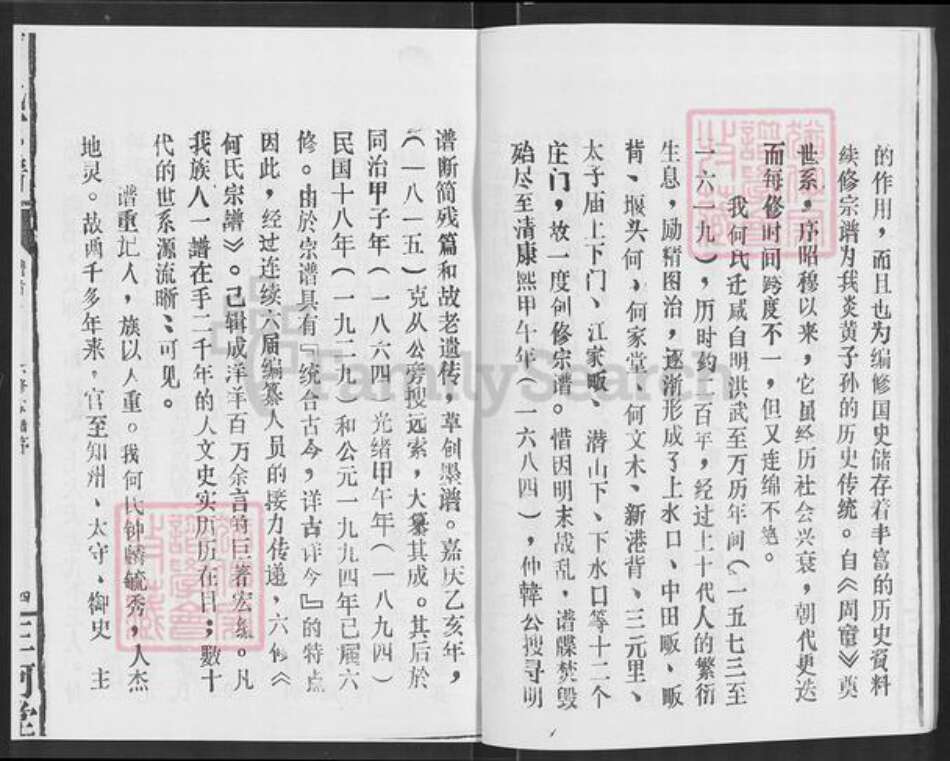 的作用，而且也为编修国史储存着丰富的历史资料
续修宗谱为我炎黄子孙的历史传统。自《周官》奠
世系，序昭穆以来，它虽经历社会兴衰，朝代更迭
而每修时间跨度不一，但又连绵不绝。
我何氏迁咸自明洪武至万历年间（一五七三至
一六一九），历时约二百年，经过上十代人的繁衍
生息，励精图治，逐渐形成了上水口、中田畈、畈
背、堰头何、何家堂、何文木、新港背、三元里、
太子庙上下门、江家畈、潜山下、下水口等十二个
庄门，故一度创修宗谱。惜因明末战乱，谱牒焚毁
殆尽至清康熙甲午年（一六八四），仲韓公搜寻明
谱断简残篇和故老遗传，草创墨谱。嘉庆乙亥年，
（一八一五）克从公旁搜远索，大纂其成。其后於
同治甲子年（一八六四）光绪甲午年（一八九四）
民国十八年（一九二九）和公元一九九四年已属六
修。由於宗谱具有『统合古今，详古详今』的特点
因此，经过连续六届编纂人员的接力传递，六修《
何氏宗譜》。已辑成洋洋百万余言的巨著宏编。凡
我族人一譜在手二千年的人文史实历历在目；数十
代的世系源流晰晰可见。
谱重记人，族以人重。我何氏钟麟毓秀，人杰
地灵。故两千多年来，官至知州、太守、御史 主
四
三河堂
FamilySearch